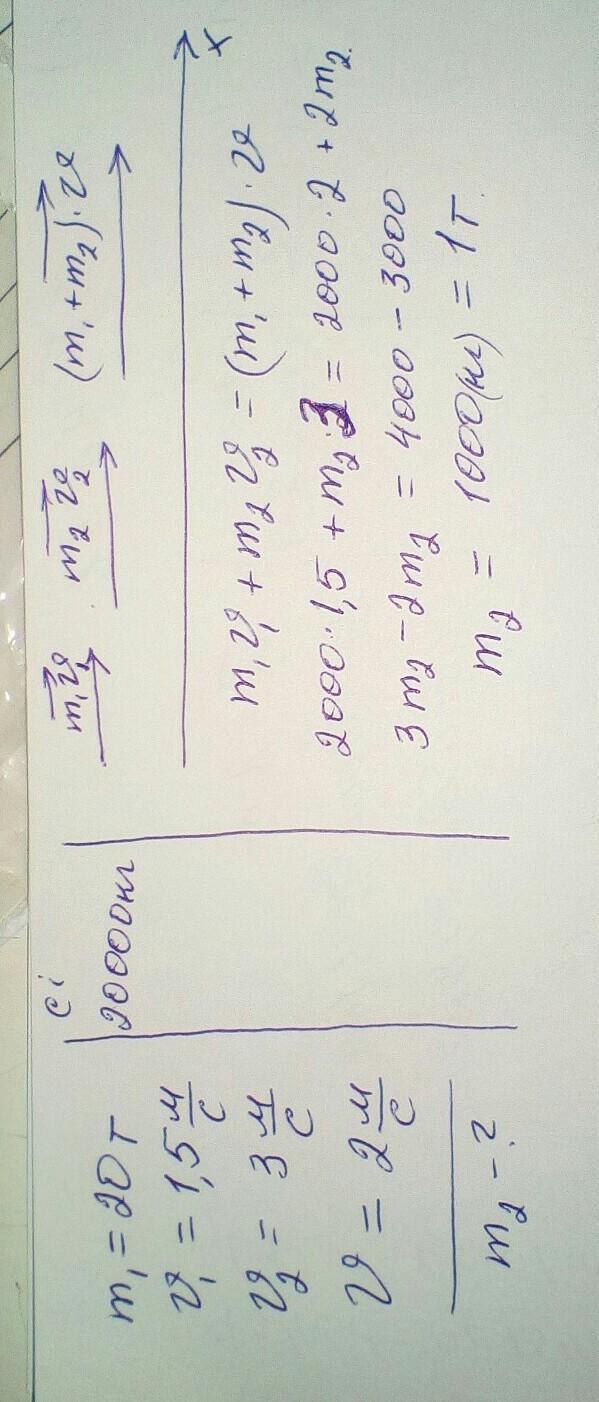 m₁ = 20 т
υ₁ = 1,5 м/с
υ₂ = 3 м/с
υ = 2 м/с
m₂ - ?
сі
20000 кг
m₁υ₁ m₂υ₂ (m₁ + m₂)·υ
x
m₁υ₁ + m₂υ₂ = (m₁ + m₂)·υ
2000·1,5 + m₂·3 = 2000·2 + 2m₂
3m₂ - 2m₂ = 4000 - 3000
m₂ = 1000(кг) = 1т.